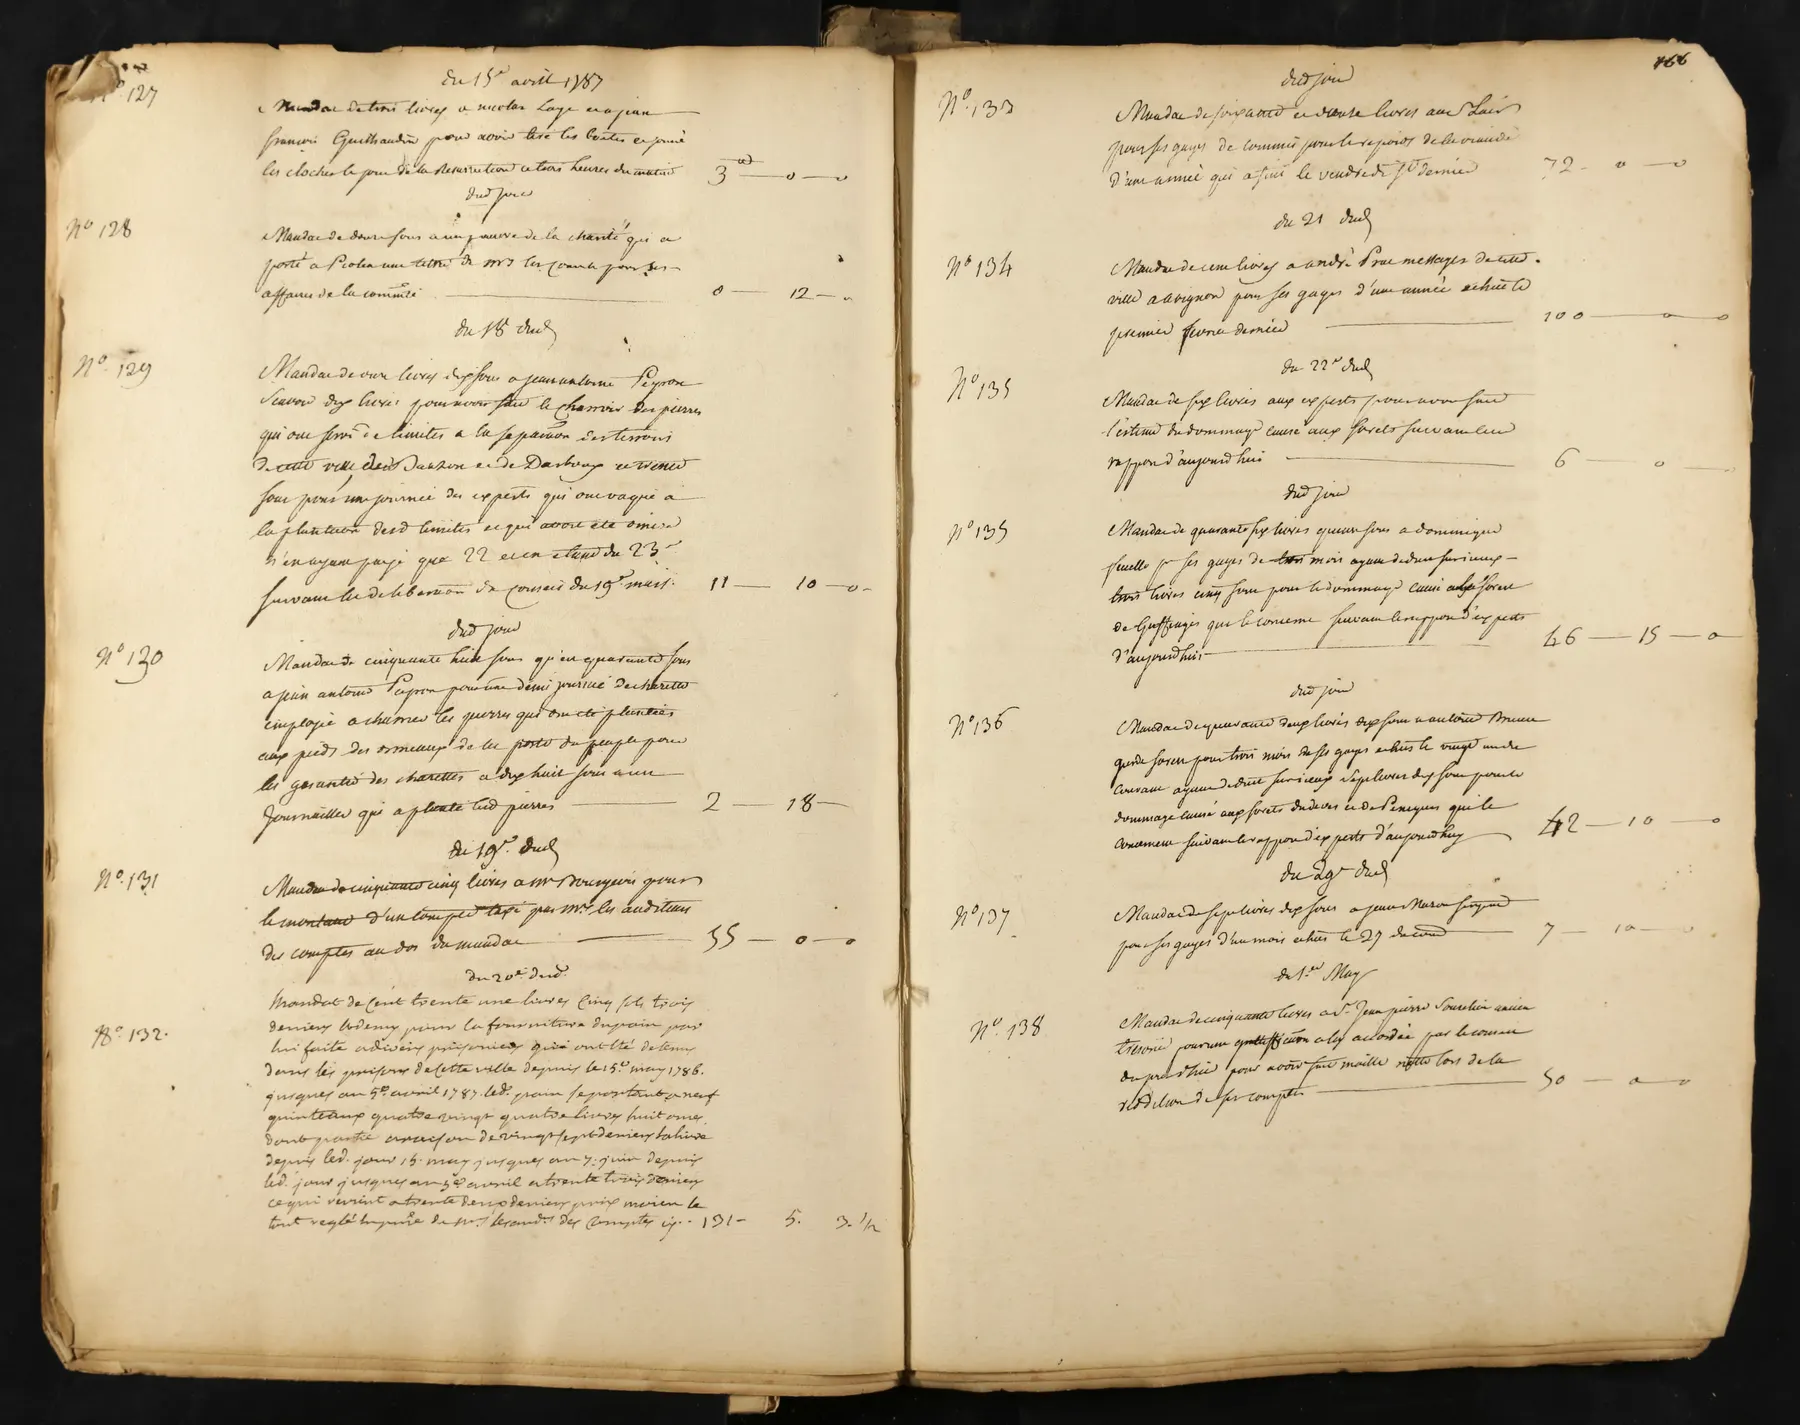 du 15e avril 1787
N° 127
Mandat de trois livres a nicolas Lage et a jean
françois pour avoir tiré les boetes et sonné
les cloches le jour de la Resurrection a trois heures du matin 3 — 0 — 0
dud jour
N° 128
Mandat de douze sous a un pauvre de la charité qui a
porté a une lettre de mrs les pour les
affaires de la commté 0 — 12 — 0
du 18 dud
N° 129
Mandat de onze livres dix sous a jean antoine Peyron
Scavoir dix livres pour avoir fait le charroir des pierres
qui ont servi de limites a la separaon des terroirs
de cette ville et de
sous pour une journée des experts qui ont vaqué a
la plantaon desd limites et qui avoit été omise
n'en ayant payé que 22 et en etant du 23e
suivant la deliberaon du conseil du 19e mars 11 — 10 — 0
dud jour
N° 130
Mandat de cinquante huit sous quarante sous
a jean antoine Peyron pour une demi journée de charette
emploié a charrier les pierres qui ont été plantées
aux pieds des ormeaux de la porte du peuple pour
les garantir des charettes et dix huit sous a un
journaillier qui a planté lesd pierres 2 — 18 —
du 19e dud
N° 131
Mandat de cinquante cinq livres a mr Bourgeois pour
le montant d'un compte taxé par mrs les auditeurs
des comptes au dos du mandat 55 — 0 — 0
du 20e dud.
N° 132.
Mandat de cent trente une livres cinq sols trois
deniers &demy pour la fourniture du pain par
lui faite a divers prisoniers qui ont été detenus
dans les prisons de cette ville depuis le 15e may 1786.
jusques au 5e avril 1787. led. pain se portant a neuf
quintaux quatre vingt quatre livres huit onces
dont partie a raison de vingt sept deniers la livre
depuis led. jour 15. may jusques au 7. juin depuis
led. jour jusques au 5e avril a trente trois deniers
ce qui revient a trente deux deniers prix moien le
tout reglé de mrs les aud.rs des comptes cy. - 131 - 5. 3. 1/2
166
dud jour
N° 133
Mandat de soixante et douze livres au Sr
pour ses gages de commis pour le repoids de la viande
d'une année qui a fini le vendredi St dernier 72 - 0 — 0
du 21 dud
N° 134
Mandat de cent livres a andré Prat messager de cette
ville a avignon pour ses gages d'une année echue le
premier fevrier dernier 100 — 0 — 0
du 22e dud
N° 135
Mandat de six livres aux experts pour avoir fait
l'estime du dommage causé aux forets suivant leur
rapport d'aujourd'hui 6 — 0 —
dud jour
N° 135
Mandat de quarante six livres quinze sous a dominique
pr ses gages de trois mois ayant deduit sur iceux
trois livres cinq sous pour le dommage causé a la foret
de que le concerne suivant le rapport d'experts
d'aujourd'hui 46 — 15 — 0
dud jour
N° 136
Mandat de quarante deux livres dix sous a antoine
garde foret pour trois mois de ses gages echus le vingt un du
courant ayant deduit sur iceux sept livres dix sous pour le
dommage causé aux forets et de qui le
concernent suivant le rapport d'experts d'aujourd'huy 42 — 10 — 0
du 29e dud
N° 137
Mandat de sept livres dix sous a jean sergent
pour ses gages d'un mois echus le 27 du court 7 — 10 — 0
du 1er May
N° 138
Mandat de cinquante livres a Sr. Jean pierre ancien
tresorier pour une gratiffication a luy accordée par le conseil
pour avoir fait maille nette lors de la
reddition de ses comptes 50 — 0 — 0